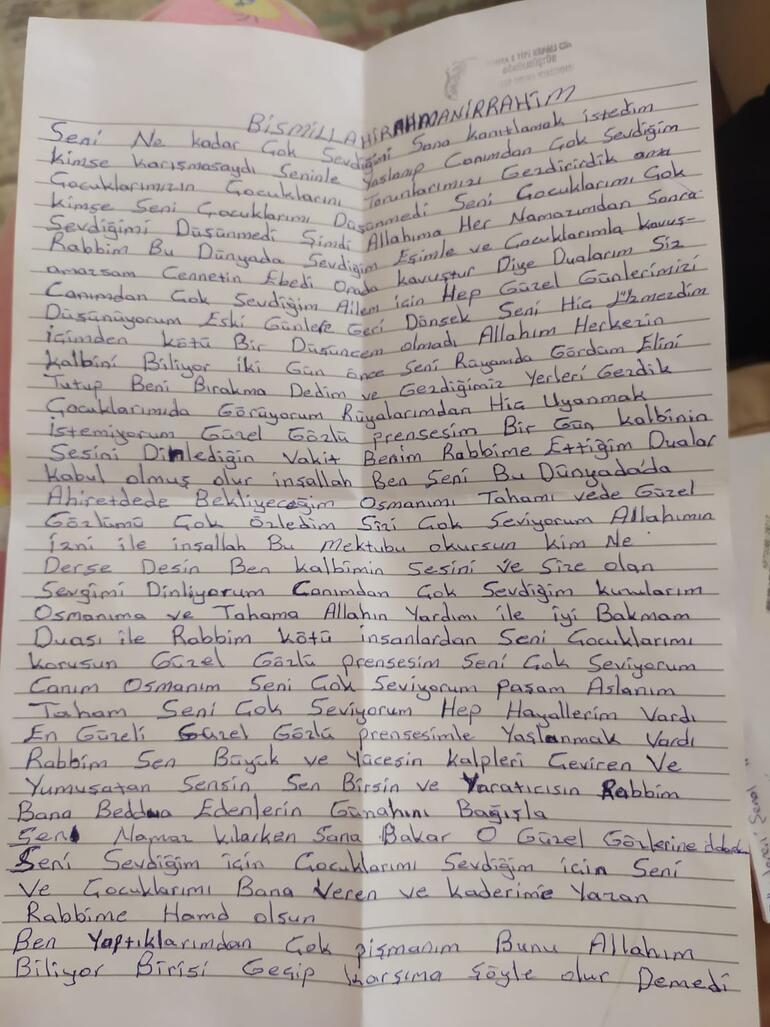 BİSMİLLAHİRAHMANİRRAHİM
Seni Ne kadar Çok Sevdiğimi Sana kanıtlamak istedim
Kimse karışmasaydı Seninle Yaslanıp Canımdan Çok Sevdiğim
Çocuklarımızın Çocuklarını Torunlarımızı Gezdirirdik ama
Kimse Seni Çocuklarımı Düşünmedi Seni Çocuklarımı Çok
Sevdiğimi Düşünmedi Şimdi Allahıma Her Namazımdan Sonra
Rabbim Bu Dünyada Sevdiğim Eşimle ve Çocuklarımla kavuş-
amazsam Cennetin Ebedi Orada kavuştur Diye Dualarım Siz
Canımdan Çok Sevdiğim Ailem için Hep Güzel Günlerimizi
Düşünüyorum Eski Günlere Geri Dönsek Seni Hiç Üzmezdim
içimden kötü Bir Düşüncem olmadı Allahım Herkezin
kalbini Biliyor iki Gün önce Seni Rüyamda Gördüm Elini
Tutup Beni Bırakma Dedim ve Gezdiğimiz Yerleri Gezdik
Çocuklarımıda Görüyorum Rüyalarımdan Hiç Uyanmak
istemiyorum Güzel Gözlü prensesim Bir Gün kalbinin
Sesini Dinlediğin Vakit Benim Rabbime Ettiğim Dualar
kabul olmuş olur inşallah Ben Seni Bu Dünyada'da
Ahiretdede Bekliyeceğim Osmanımı Tahamı vede Güzel
Gözlümü Çok özledim Sizi Çok Seviyorum Allahımın
izni ile inşallah Bu Mektubu okursun kim Ne
Derse Desin Ben kalbimin Sesini ve Size olan
Sevgimi Dinliyorum Canımdan Çok Sevdiğim kuzularım
Osmanıma ve Tahama Allahın Yardımı ile iyi Bakmam
Duası ile Rabbim kötü insanlardan Seni Çocuklarımı
korusun Güzel Gözlü prensesim Seni Çok Seviyorum
Canım Osmanım Seni Çok Seviyorum paşam Aslanım
Taham Seni Çok Seviyorum Hep Hayallerim Vardı
En Güzeli Güzel Gözlü prensesimle Yaşlanmak Vardı
Rabbim Sen Büyük ve Yücesin kalpleri Çeviren Ve
Yumuşatan Sensin Sen Birsin ve Yaratıcısın Rabbim
Bana Beddua Edenlerin Günahını Bağışla
Seni Namaz kılarken Sana Bakar O Güzel Gözlerine
Seni Sevdiğim için Çocuklarımı Sevdiğim için Seni
Ve Çocuklarımı Bana Veren ve kaderime Yazan
Rabbime Hamd olsun
Ben Yaptıklarımdan Çok pişmanım Bunu Allahım
Biliyor Birisi Geçip karşıma şöyle olur Demedi